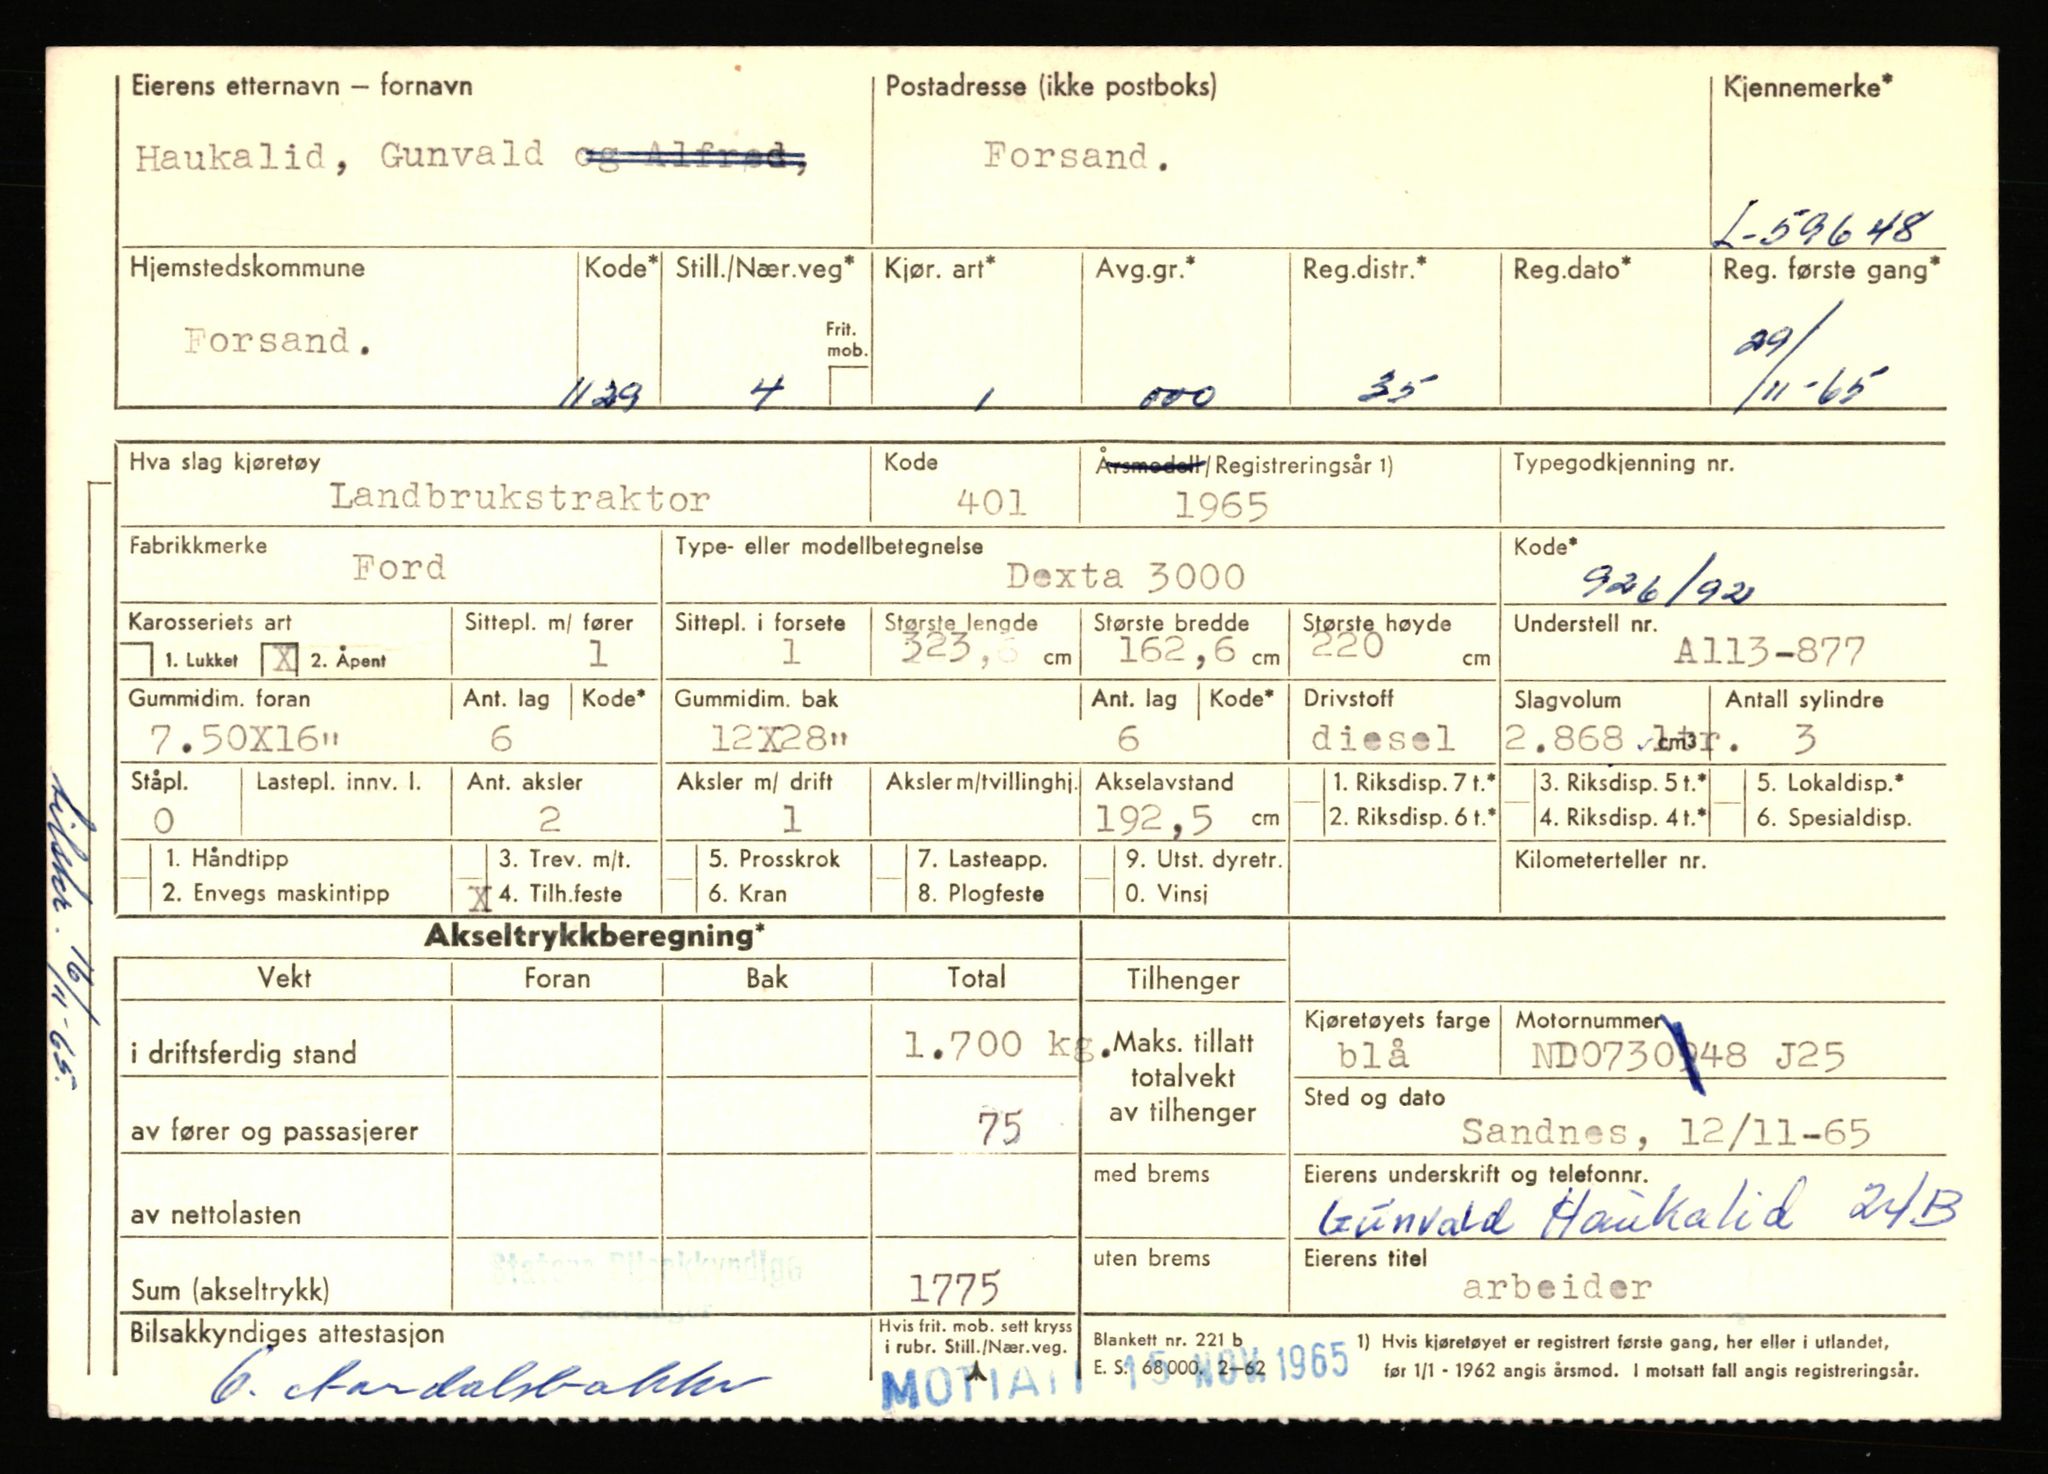 Eierens etternavn – fornavn Postadresse (ikke postboks) Kjennemerke*
Haukalid, Gunvald og Alfred, Forsand.
L-59648
Hjemstedskommune Kode* Still./Nær.veg* Kjør. art* Avg.gr.* Reg.distr.* Reg.dato* Reg. første gang*
Forsand. Frit. mob.
1129 4 1 000 35 29/11-65
Hva slag kjøretøy Kode Årsmodell/Registreringsår 1) Typegodkjenning nr.
Landbrukstraktor 401 1965
Fabrikkmerke Type- eller modellbetegnelse Kode*
Ford Dexta 3000 926/92
Karosseriets art Sittepl. m/ fører Sittepl. i forsete Største lengde Største bredde Største høyde Understell nr.
1. Lukket X 2. Åpent 1 1 323,6 cm 162,6 cm 220 cm A113-877
Gummidim. foran Ant. lag Kode* Gummidim. bak Ant. lag Kode* Drivstoff Slagvolum Antall sylindre
7.50X16" 6 12X28" 6 diesel 2.868 ltr. cm3 3
Ståpl. Lastepl. innv. l. Ant. aksler Aksler m/ drift Aksler m/tvillinghj. Akselavstand 1. Riksdisp. 7 t.* 3. Riksdisp. 5 t.* 5. Lokaldisp.*
0 2 1 192,5 cm 2. Riksdisp. 6 t.* 4. Riksdisp. 4 t.* 6. Spesialdisp.
1. Håndtipp 3. Trev. m/t. 5. Prosskrok 7. Lasteapp. 9. Utst. dyretr. Kilometerteller nr.
2. Envegs maskintipp X 4. Tilh.feste 6. Kran 8. Plogfeste 0. Vinsj
Akseltrykkberegning*
Vekt Foran Bak Total Tilhenger
Kjøretøyets farge Motornummer
i driftsferdig stand 1.700 kg. Maks. tillatt blå ND0730948 J25
totalvekt
av tilhenger Sted og dato
av fører og passasjerer 75 Sandnes, 12/11-65
med brems Eierens underskrift og telefonnr.
av nettolasten Gunvald Haukalid 24B
uten brems Eierens titel
Statens Bilsakkyndige
Sum (akseltrykk) 1775 arbeider
Bilsakkyndiges attestasjon Hvis frit. mob. sett kryss i rubr. Still./Nær.veg. Blankett nr. 221 b 1) Hvis kjøretøyet er registrert første gang, her eller i utlandet,
E. S. 68000. 2–62 før 1/1 - 1962 angis årsmod. I motsatt fall angis registreringsår.
MOTTATT 15 NOV. 1965
16/11-65.